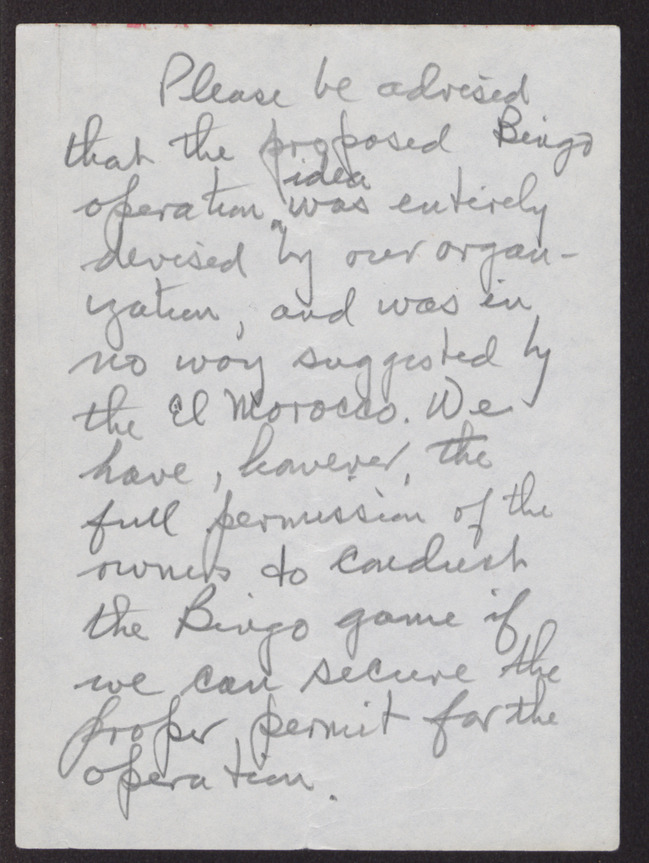 Please be advised
that the proposed Bingo
idea
operation ^ was entirely
devised by our organ-
ization, and was in
no way suggested by
the El Morocco. We
have, however, the
full permission of the
owners to conduct
the Bingo game if
we can secure the
proper permit for the
operation.